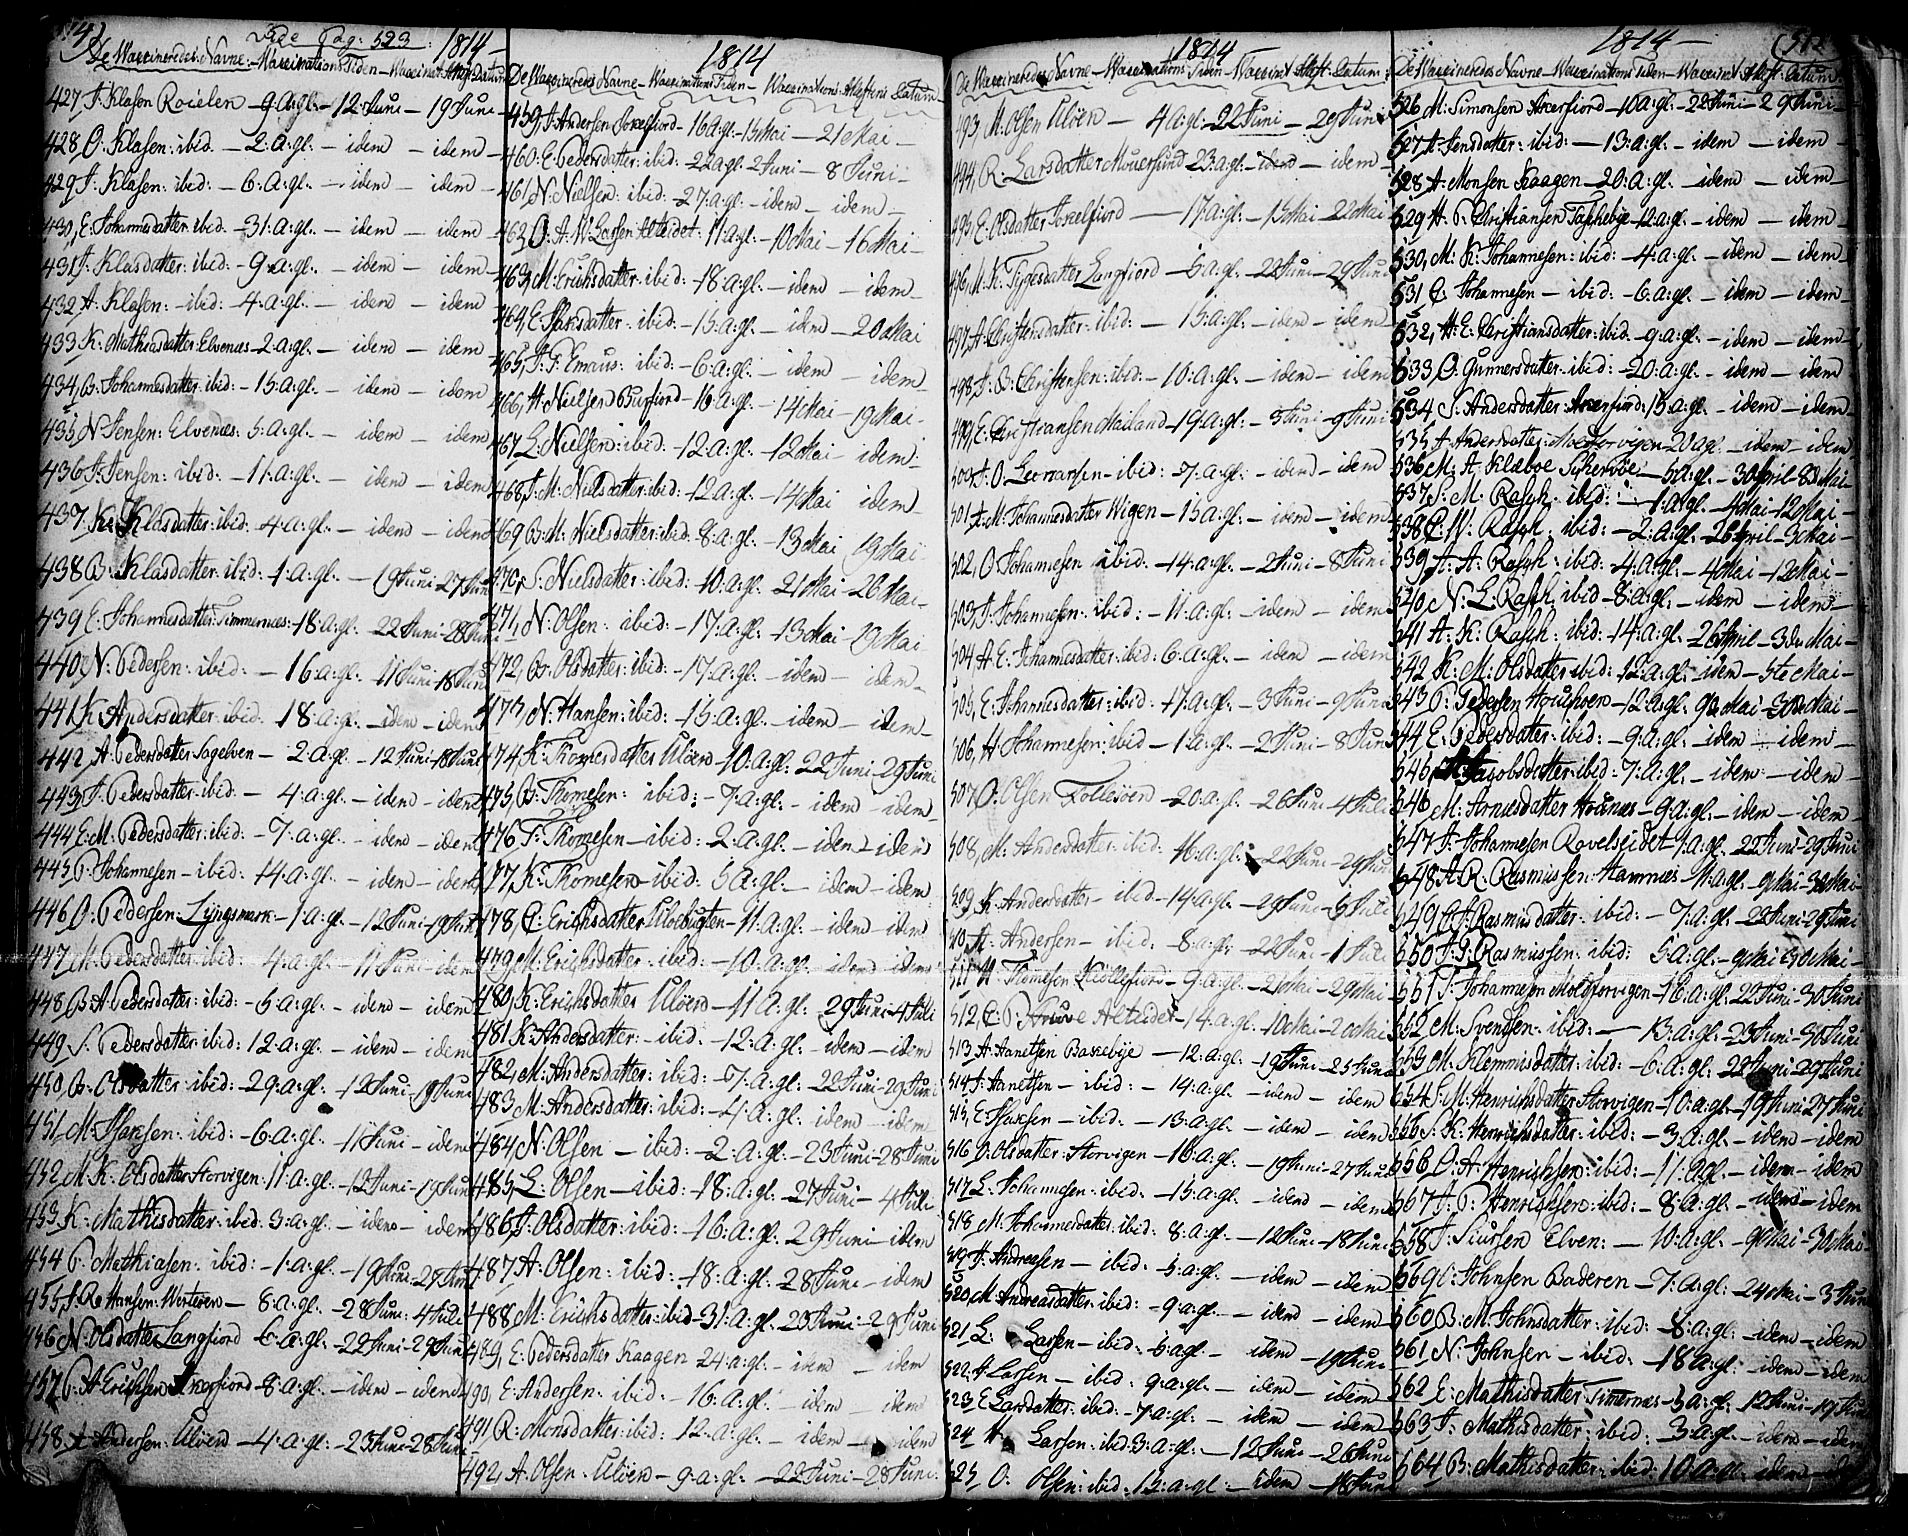 Vide Pag: 523. 1814
De Waccineredes Navne - Waccinations Tiden - Waccinat: Attest: Datum
427, J: Klasen Roielen - 9 a: gl: - 12 Juni - 19 Juni
428 O: Klasen: ibid - 2: a: gl. - idem - idem
429 J: Klasen: ibid: - 6: a: gl. - idem - idem
430, E: Johannesdatter ibid. - 31: a: gl. - idem - idem
431 J: Klasdatter: ibid: - 9 a: gl. - idem - idem
432 A: Klasen: - ibid: - 4: a: gl. - idem - idem
433 K: Mathiasdatter: Elvenæs - 2 a: gl: - idem - idem
434, B: Johannesdatter: ibid: - 15: a: gl. - idem - idem
435 N Jensen: Elvenæs: 5: a: gl. - idem - idem
436 J: Jensen: ibid: - 11: a: gl. - idem - idem
437 K: Klasdatter: ibid: 4: a: gl. - idem - idem
438 B: Klasdatter: ibid: 1: a: gl. - 19 Juni - 27 Juni
439 E: Johannesdatter: Timmernæs: - 18: a: gl. - 22 Juni - 28 Juni
440 N: Pedersen: ibid: - 16 a: gl. - 11 Juni - 18 Juni
441 K: Andersdatter: ibid: 18: a: gl. - idem - idem
442 A: Pedersdatter Sagelven - 2: a: gl. - 12 Juni - 18 Juni
443 J: Pedersdatter: ibid: - 4: a: gl. - idem - idem
444 E: M: Pedersdatter: ibid: - 7: a: gl. - idem - idem
445 P: Johannesen - ibid: - 14: a: gl: - idem - idem
446 O: Pedersen: Lyngsmark - 1: a: gl. - 12 Juni - 19 Juni
447 M: Pedersdatter: ibid: 4: a: gl. - 11 Juni - idem
448 B: A: Pedersdatter: ibid: - 5: a: gl. - idem - idem
449 S: Pedersdatter: ibid: 12: a: gl. - idem - idem
450, B: Olsdatter: ibid: - 29: a: gl. - 12 Juni - 19 Juni
451 M: Hansen: ibid: - 6: a: gl. - 11 Juni - idem
452 M: K: Olsdatter Storvigen: 11: a: gl. - 12 Juni - 19 Juni
453 K: Mathisdatter: ibid: 3: a: gl. - idem - idem
454 P: Mathiasen: ibid: - 1: a: gl. - 19 Juni - 27 Juni
455 Hansen: - 8: a: gl. - 28 Juni - 4 Juli
456 N: Olsdatter Langfiord - 6: a: gl. - 22 Juni - 29 Juni
457 P: A: Erichsen - 8: a: gl. - idem - idem
458 A: Andersen: Ulöen - 4: a: gl. - 23 Juni - 28 Juni
1814
De Waccineredes Navne - Waccinations Tiden - Waccinations Attestens Datum
459, J: Andersen - 16 a: gl. - 15 Mai - 21 Mai
460: E: Pedersdatter: ibid: - 22 a: gl. - 2 Juni - 8 Juni
461, N: Nielsen: ibid: - 27: a: gl. - idem - idem
462, O: A: W: Larsen Alteidet: 11: a: gl. - 10 Mai - 16 Mai
463, M: Erichsdatter: ibid: - 18: a: gl. - idem - idem
464, E: Hansdatter: ibid: - 15: a: gl. - idem - 20 Mai
465, J: F: Emaus: ibid: - 6: a: gl. - idem - idem
466, H: Nielsen Burfiord - 16 a: gl. - 14 Mai - 19 Mai
467 L: Nielsen: ibid: - 12: a: gl. - 12 Mai - idem
468, J: M: Nielsdatter: ibid: - 12 a: gl. - 14 Mai idem
469 B: M: Nielsdatter: ibid: - 8: a: gl. - 13 Mai 19 Mai
470, S: Nielsdatter: ibid: - 10: a: gl. - 21 Mai - 26 Mai
471, N: Olsen: ibid: - 17: a: gl. - 13 Mai - 19 Mai
472, B: Olsdatter: ibid: - 17: a: gl. - idem - idem
473, N: Hansen: ibid: - 15: a: gl. - idem - idem
474, K: Thomesdatter Ulöen - 10: a: gl: 22 Juni - 29 Juni
475, B: Thomesen: ibid: - 7: a: gl. - idem - idem
476, T: Thomesen - ibid: 2: a: gl. - idem - idem
477 K: Thomesen - ibid: 5 a: gl. - idem - idem
478, C: Erichsdatter Ulöebugten - 11: a: gl. - idem - idem
479, M: Erichsdatter: ibid: - 10: a: gl. idem idem
480, K: Erichsdatter Ulöen - 11 a: gl. 29 Juni - 4 Juli
481 K: Andersdatter: ibid: - 12: a: gl. - idem - idem
482, M: Andersdatter: ibid: - 7: a: gl. - 22 Juni - 29 Juni
483 M: Andersdatter: ibid: - 4: a: gl. - idem - idem
484 N: Olsen - ibid: - 2: a: gl. - 23 Juni - 28 Juni
485, L: Olsen - ibid: - 18: a: gl. - 27 Juni - 4 Juli
486 J: Olsdatter: ibid: - 16: a: gl. - 29 Juni - idem
487 A: Olsen: ibid: - 18: a: gl. 28 Juni - idem
488 M: Erichsdatter: ibid - 31: a: gl. 23 Juni - 29 Juni
489, E: Pedersdatter Kaagen 24: a: gl. - idem - idem
490, E: Andersen: ibid: - 16: a: gl. - idem - idem
491 R: Monsdatter: ibid: 12: a: gl. - idem - idem
492, A: Olsen: Ulöen - 9: a: gl. - 22 Juni - 28 Juni
1814
De Waccineredes Navne - Waccinations Tiden - Waccinat: Attest: Datum:
493, M: Olsen Ulöen - 4 a: gl. - 22 Juni - 29 Juni
494, R: Larsdatter Mauersund 23: a: gl. - idem - idem
495, E: Olsdatter - 17: a: gl. - 15 Mai - 22 Mai
496, M: K: Langfiord - 5: a: gl. - 22 Juni - 29 Juni
497 A: Christensdatter: ibid: - 15: a: gl. - idem - idem
498, J: O: Christensen: ibid: - 10: a: gl. - idem - idem
499, E: Christiansen Mailand - 19: a: gl. - 3 Juni - 9 Juni
500, J: O: Leernarsen - ibid: - 7: a: gl. - idem - idem
501 A: M: Johannesdatter Wigen - 15 a: gl. - idem - idem
502, O: Johannesen ibid: - 14: a: gl. - 2 Juni - 8 Juni
503, J: Johannesen: ibid: - 11: a: gl. - idem - idem
504 A: E: Johannesdatter: ibid: 6: a: gl. - idem - idem
505, E: Johannesdatter: ibid: - 17: a: gl. - 3 Juni - 9 Juni
506, H Johannesen: ibid: - 1: a: gl. - 2 Juni - 8 Juni
507 O: Olsen Follesöen - 20: a: gl. - 26 Juni - 4 Juli
508, M: Andersdatter: ibid: 16: a: gl. - 22 Juni - 29 Juni
509 K: Andersdatter - ibid: - 14: a: gl. - 29 Juni - 5 Juli
510 A: Andersen - ibid: - 8: a: gl. - 22 Juni - 1 Juli
511 H: Thomesen Kiöllefiord - 9: a: gl. - 21 Mai - 29 Mai
512, C: P: Alteidet - 14: a: gl. - 10 Mai - 20 Mai
513 A: Aanetsen Baskebye - 12: a: gl. - 19 Juni - 25 Juni
514 J: Aanetsen - ibid: - 14: a: gl. - idem - idem
515, E: - ibid: - 13: a: gl. - idem - idem
516 O: Olsdatter Storvigen - 16: a: gl. - 19 Juni - 27 Juni
517 L: Johannesen: ibid: - 15: a: gl. - idem - idem
518 M: Johannesdatter: ibid: 8: a: gl. - 12 Juni - 18 Juni
519 J: Andreasen - ibid: - 5: a: gl. - idem - idem
520, M: Andreasdatter: ibid: - 9: a: gl. - idem - idem
521 L: Larsen - ibid: - 6: a: gl. - idem - 19 Juni
522: A Larsen - ibid: 9: a: gl. - idem - idem
523 E: Larsdatter: ibid: - 7: a: gl. - idem - idem
524 Larsen: ibid: 3: a: gl. - 12 Juni - 26 Juni
525 O: Olsen: ibid: 12: a: gl. - idem - 18 Juni
1814
De Waccineredes Navne - Waccinations Tiden - Waccinat: Attest: Datum
526 M: Simonsen - 10 a: gl. - 22 Juni - 29 Juni
527 A: Jensdatter: ibid: - 13: a: gl. - idem - idem
528 A: Monsen Kaagen - 20: a: gl. - idem - idem
529 H: P: Christiansen Taskebye - 12: a: gl. - idem - idem
530, M: K: Johannesen: ibid: - 4: a: gl. - idem - idem
531 C: Johannesen - ibid: - 6: a: gl. - idem - idem
532, H: E: Christiansdatter: ibid: - 9: a: gl. - idem - idem
533 O: Gunnersdatter: ibid: - 20: a: gl. - idem - idem
534 S: Andersdatter: 15 a: gl. - idem - idem
535 A: Andersdatter: 20 a gl. - idem - idem
536 M: A: Klæboe Schervöe - 5 a: gl. - 30 April - 8 Mai
537 S: M: Rasch: ibid: - 1: a: gl. - 4 Mai - 12 Mai
538 C: W: Rasch: ibid: - 2: a: gl. - 26 April - 3 Mai
539 A: A: Rasch: ibid: 4: a: gl. - 4 Mai - 12 Mai
540 N: L: Rasch: ibid - 8: a: gl. - idem - idem
541 A: K: Rasch: ibid: - 14: a: gl. 26 April - 3de Mai
542 K: M: Olsdatter: ibid: - 12: a: gl. - idem - 5te Mai
543 P: Pedersen - 12: a: gl. 9de Mai - 30de Mai
544 E: Pedersdatter: ibid: - 9: a: gl. - idem - idem
545, Jacobsdatter: ibid: 7: a: gl. - idem - idem
546 M: Arnesdatter - 9: a: gl. - idem - idem
547 J: Johannesen Ravelseidet 1: a: gl. 22 Juni - 29 Juni
548 A: R: Rasmussen: Hamnæs - 11: a: gl. - 9 Mai - 30 Mai
549 Rasmusdatter: ibid: - 7: a: gl. - 22 Juni - 29 Juni
550 J: J: Rasmussen: ibid: 5: a: gl. - 9 Mai - 30 Mai
551 J: Johannesen - 16: a: gl. 22 Juni - 30 Juni
552 M: Svendsen: ibid: - 13: a: gl. - 23 Juni - 30 Juni
553 M: Klemmisdatter: ibid: - 6: a: gl. 22 Juni - 29 Juni
554 S: M: Henrichsdatter Storvigen - 10: a: gl. - 19 Juni - 27 Juni
555 S: K: Henrichsdatter: ibid: - 3: a: gl. - idem - idem
556 O: A: Henrichsen: ibid: - 11: a: gl. - idem - idem
557 A: P: Henrichsen: ibid: - 8: a: gl. - idem - idem
558 J: Siursen Elven: - 10: a: gl. - 9 Mai - 30 Mai
559 Johnsen Baderen - 7: a: gl. - 24 Mai - 3 Juni
560 B: M: Johnsdatter: ibid: - 8: a: gl. - idem - idem
561 N: Johnsen - ibid: - 18 a: gl. idem - idem
562 E: Mathisdatter: Timernæs - 5 a: gl. 12 Juni - 19 Juni
563 J: Mathisdatter: ibid: 3: a: gl. - idem - idem
564 B: Mathisdatter: ibid: 10: a: gl. idem -